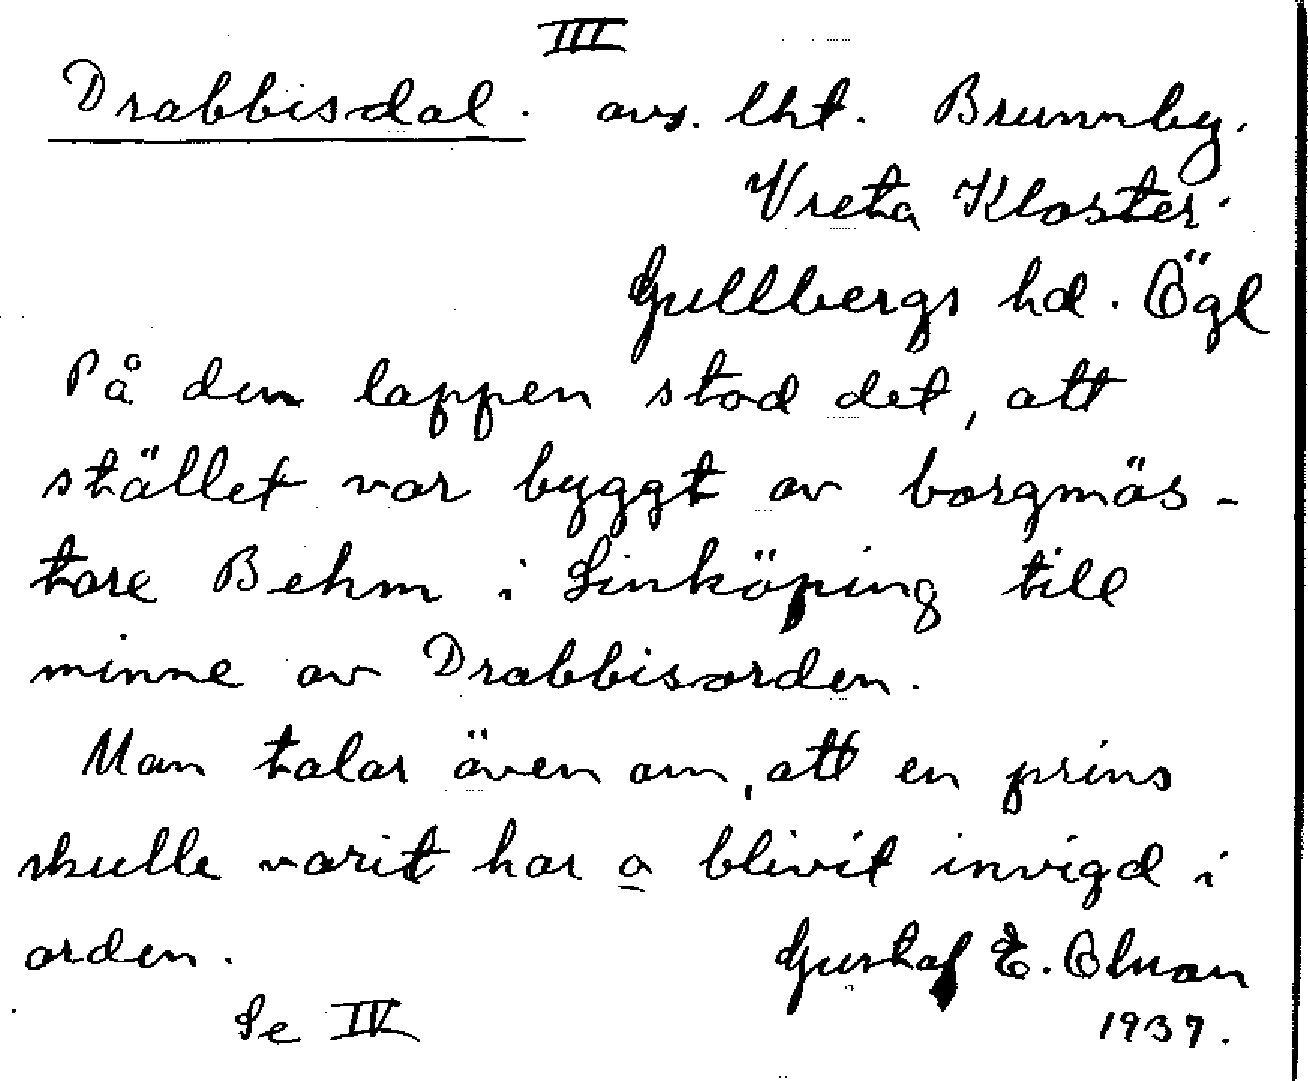 III
Drabbisdal. avs. lht. Brunnby.
Vreta Kloster.
Gullbergs hd. Ögl
På den lappen stod det, att
stället var byggt av borgmäs-
tare Behm i Linköping till
minne av Drabbisorden.
Man talar även om, att en prins
skulle varit här o blivit invigd i
orden.
Gustaf E. Olson
Se IV
1937.